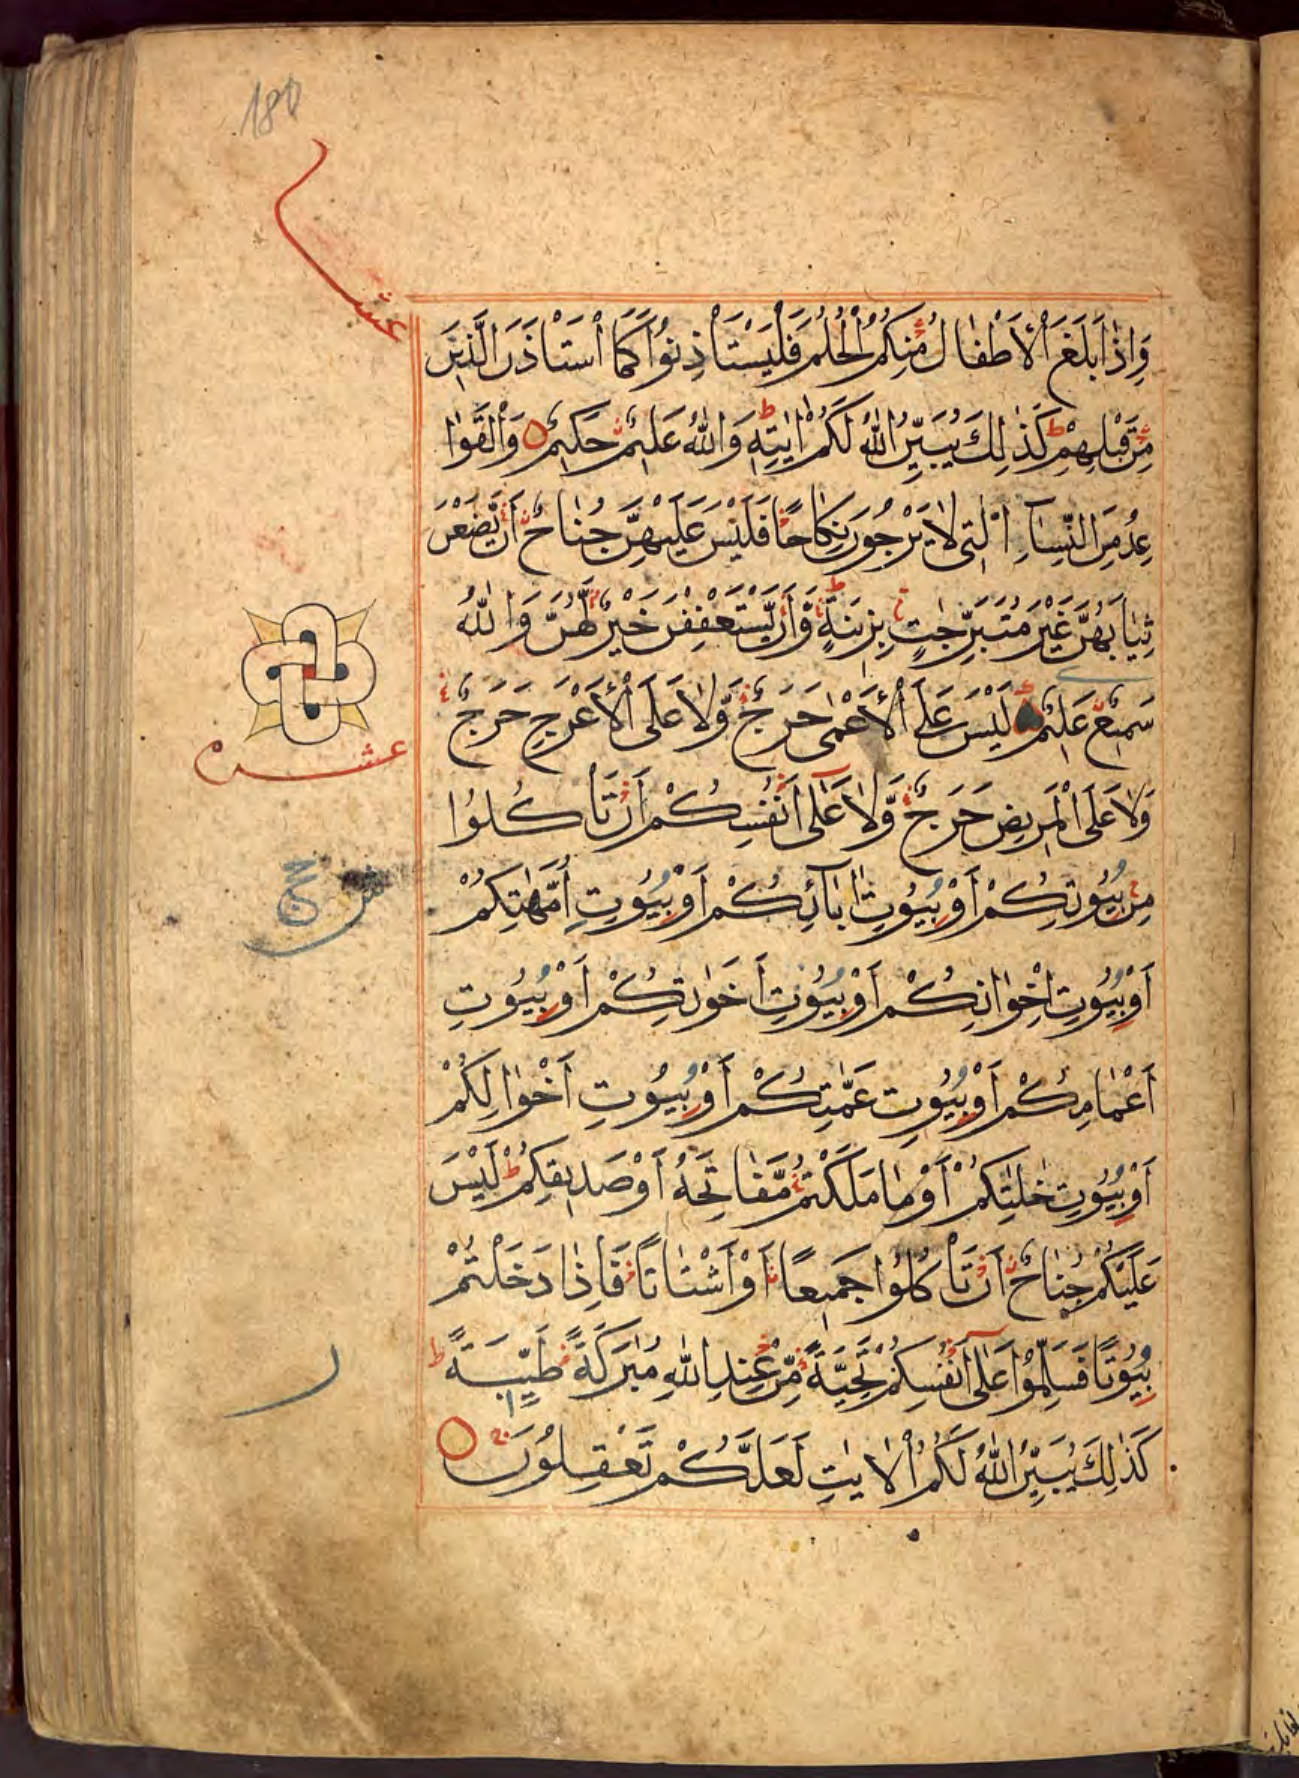 180
عشر
وَاِذَا بَلَغَ الْاَطْفَالُ مِنْكُمُ الْحُلُمَ فَلْيَسْتَاْذِنُوْا كَمَا اسْتَاْذَنَ الَّذِيْنَ
مِنْ قَبْلِهِمْ ط كَذٰلِكَ يُبَيِّنُ اللّٰهُ لَكُمْ اٰيٰتِهٖ ط وَاللّٰهُ عَلِيْمٌ حَكِيْمٌ وَالْقَوَا
عِدُ مِنَ النِّسَآءِ الّٰتِى لَا يَرْجُوْنَ نِكَاحًا فَلَيْسَ عَلَيْهِنَّ جُنَاحٌ اَنْ يَّضَعْنَ
ثِيَابَهُنَّ غَيْرَ مُتَبَرِّجٰتٍ بِزِيْنَةٍ ط وَّاَنْ يَّسْتَعْفِفْنَ خَيْرٌ لَّهُنَّ وَاللّٰهُ
سَمِيْعٌ عَلِيْمٌ لَيْسَ عَلَى الْاَعْمٰى حَرَجٌ وَّلَا عَلَى الْاَعْرَجِ حَرَجٌ
عشر
وَّلَا عَلَى الْمَرِيْضِ حَرَجٌ وَّلَا عَلٰٓى اَنْفُسِكُمْ اَنْ تَاْكُلُوْا
مِنْ بُيُوْتِكُمْ اَوْ بُيُوْتِ اٰبَآئِكُمْ اَوْ بُيُوْتِ اُمَّهٰتِكُمْ
اَوْ بُيُوْتِ اِخْوَانِكُمْ اَوْ بُيُوْتِ اَخَوٰتِكُمْ اَوْ بُيُوْتِ
اَعْمَامِكُمْ اَوْ بُيُوْتِ عَمّٰتِكُمْ اَوْ بُيُوْتِ اَخْوَالِكُمْ
اَوْ بُيُوْتِ خٰلٰتِكُمْ اَوْ مَا مَلَكْتُمْ مَّفَاتِحَهُ اَوْ صَدِيْقِكُمْ ط لَيْسَ
عَلَيْكُمْ جُنَاحٌ اَنْ تَاْكُلُوْا جَمِيْعًا اَوْ اَشْتَاتًا فَاِذَا دَخَلْتُمْ
بُيُوْتًا فَسَلِّمُوْا عَلٰٓى اَنْفُسِكُمْ تَحِيَّةً مِّنْ عِنْدِ اللّٰهِ مُبٰرَكَةً طَيِّبَةً ط
كَذٰلِكَ يُبَيِّنُ اللّٰهُ لَكُمُ الْاٰيٰتِ لَعَلَّكُمْ تَعْقِلُوْنَ